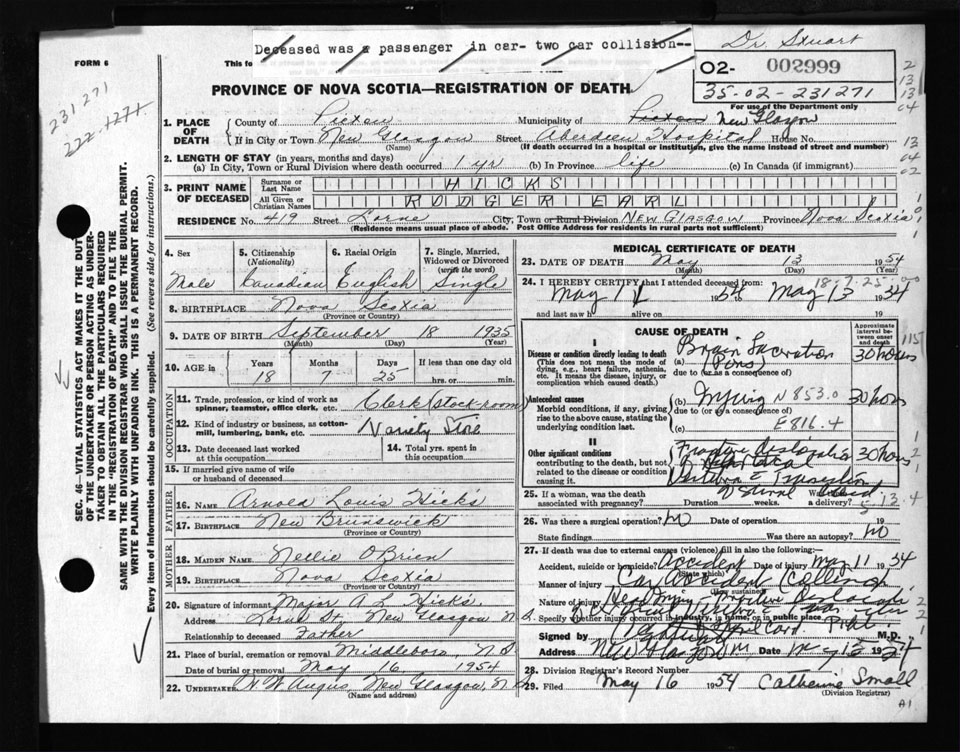 Deceased was a passenger in car- two car collision--
Dr. Stuart
FORM 6
This to
02- 002999
35-02-231271
For use of the Department only
231271
PROVINCE OF NOVA SCOTIA—REGISTRATION OF DEATH
1. PLACE OF DEATH
County of Pictou Municipality of Pictou New Glasgow
If in City or Town New Glasgow Street Aberdeen Hospital House No.
(Name) (If death occurred in a hospital or institution, give the name instead of street and number)
2. LENGTH OF STAY (in years, months and days)
(a) In City, Town or Rural Division where death occurred 1 yr (b) In Province life (c) In Canada (if immigrant)
3. PRINT NAME OF DECEASED
Surname or Last Name HICKS
All Given or Christian Names RODGER EARL
RESIDENCE No. 419 Street Lorne City, Town or Rural Division NEW GLASGOW Province Nova Scotia
(Residence means usual place of abode. Post Office Address for residents in rural parts not sufficient)
4. Sex Male
5. Citizenship (Nationality) Canadian
6. Racial Origin English
7. Single, Married, Widowed or Divorced (write the word) Single
8. BIRTHPLACE Nova Scotia
(Province or Country)
9. DATE OF BIRTH September 18 1935
(Month) (Day) (Year)
10. AGE in Years 18 Months 7 Days 25 If less than one day old hrs. or min.
OCCUPATION
11. Trade, profession, or kind of work as spinner, teamster, office clerk, etc. Clerk (stock-room)
12. Kind of industry or business, as cotton-mill, lumbering, bank, etc. Variety Store
13. Date deceased last worked at this occupation
14. Total yrs. spent in this occupation
15. If married give name of wife or husband of deceased
FATHER
16. NAME Arnold Louis Hicks
17. BIRTHPLACE New Brunswick
(Province or Country)
MOTHER
18. MAIDEN NAME Nellie O'Brien
19. BIRTHPLACE Nova Scotia
(Province or Country)
20. Signature of informant Major A L Hicks
Address Lorne St. New Glasgow N
Relationship to deceased Father
21. Place of burial, cremation or removal Middleboro, N S
Date of burial or removal May 16 1954
22. UNDERTAKER H W Angus New Glasgow, N S
(Name and address)
MEDICAL CERTIFICATE OF DEATH
23. DATE OF DEATH May 13 1954
(Month) (Day) (Year)
24. I HEREBY CERTIFY that I attended deceased from:
May 11 1954 to May 13 1954
and last saw h alive on 19
CAUSE OF DEATH
Approximate interval between onset and death
I
Disease or condition directly leading to death (This does not mean the mode of dying, e.g., heart failure, asthenia, etc. It means the disease, injury, or complication which caused death.)
(a) Brain Laceration Pons 30 hours
due to (or as a consequence of)
Antecedent causes
Morbid conditions, if any, giving rise to the above cause, stating the underlying condition last.
(b) Injury N 853.0 30 hours
due to (or as a consequence of)
(c) E816.4
II
Other significant conditions contributing to the death, but not related to the disease or condition causing it.
Fracture dislocation 30 hours
25. If a woman, was the death associated with pregnancy? Duration weeks. a delivery?
26. Was there a surgical operation? No Date of operation 19
State findings Was there an autopsy? No
27. If death was due to external causes (violence) fill in also the following:—
Accident, suicide or homicide? Accident Date of injury May 11 1954
(State which)
Manner of injury Car Accident (Collision)
(How sustained)
Nature of injury Head Injury Fracture Dislocation
Specify whether injury occurred in industry, in home, or in public place.
Signed by M.D.
Address New Glasgow Date May 1954
28. Division Registrar's Record Number
29. Filed May 16 1954 Catherine Small
(Division Registrar)
A1
SEC. 46—VITAL STATISTICS ACT MAKES IT THE DUTY OF THE UNDERTAKER OR PERSON ACTING AS UNDERTAKER TO OBTAIN ALL THE PARTICULARS REQUIRED IN THE "REGISTRATION OF DEATH" AND TO FILE THE SAME WITH THE DIVISION REGISTRAR WHO SHALL ISSUE THE BURIAL PERMIT.
WRITE PLAINLY WITH UNFADING INK. THIS IS A PERMANENT RECORD.
Every item of information should be carefully supplied. (See reverse side for instructions.)